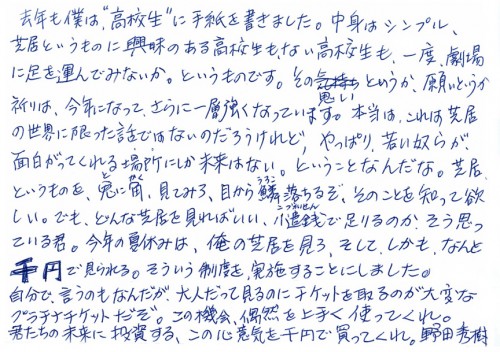 去年も僕は、“高校生”に手紙を書きました。中身はシンプル、
芝居というものに興味のある高校生も、ない高校生も、一度、劇場
に足を運んでみないか。というものです。その気持ち思いというか、願いというか
祈りは、今年になって、さらに一層強くなっています。本当は、これは芝居
の世界に限った話ではないのだろうけれど、やっぱり、若い奴らが、
面白がってくれる場所にしか未来はない。ということなんだな。芝居
というものを、兎に角、見てみろ、目から鱗落ちるぞ、そのことを知って欲
しい。でも、どんな芝居を見ればいい、小遣銭で足りるのか、そう思っ
ている君。今年の夏休みは、俺の芝居を見ろ、そして、しかも、なんと
千円で見られる。そういう制度を、実施することにしました。
自分で、言うのもなんだが、大人だって見るのにチケットを取るのが大変な
プラチナチケットだぞ。この機会、偶然を上手く使ってくれ。
君たちの未来に投資する、この心意気を千円で買ってくれ。野田秀樹